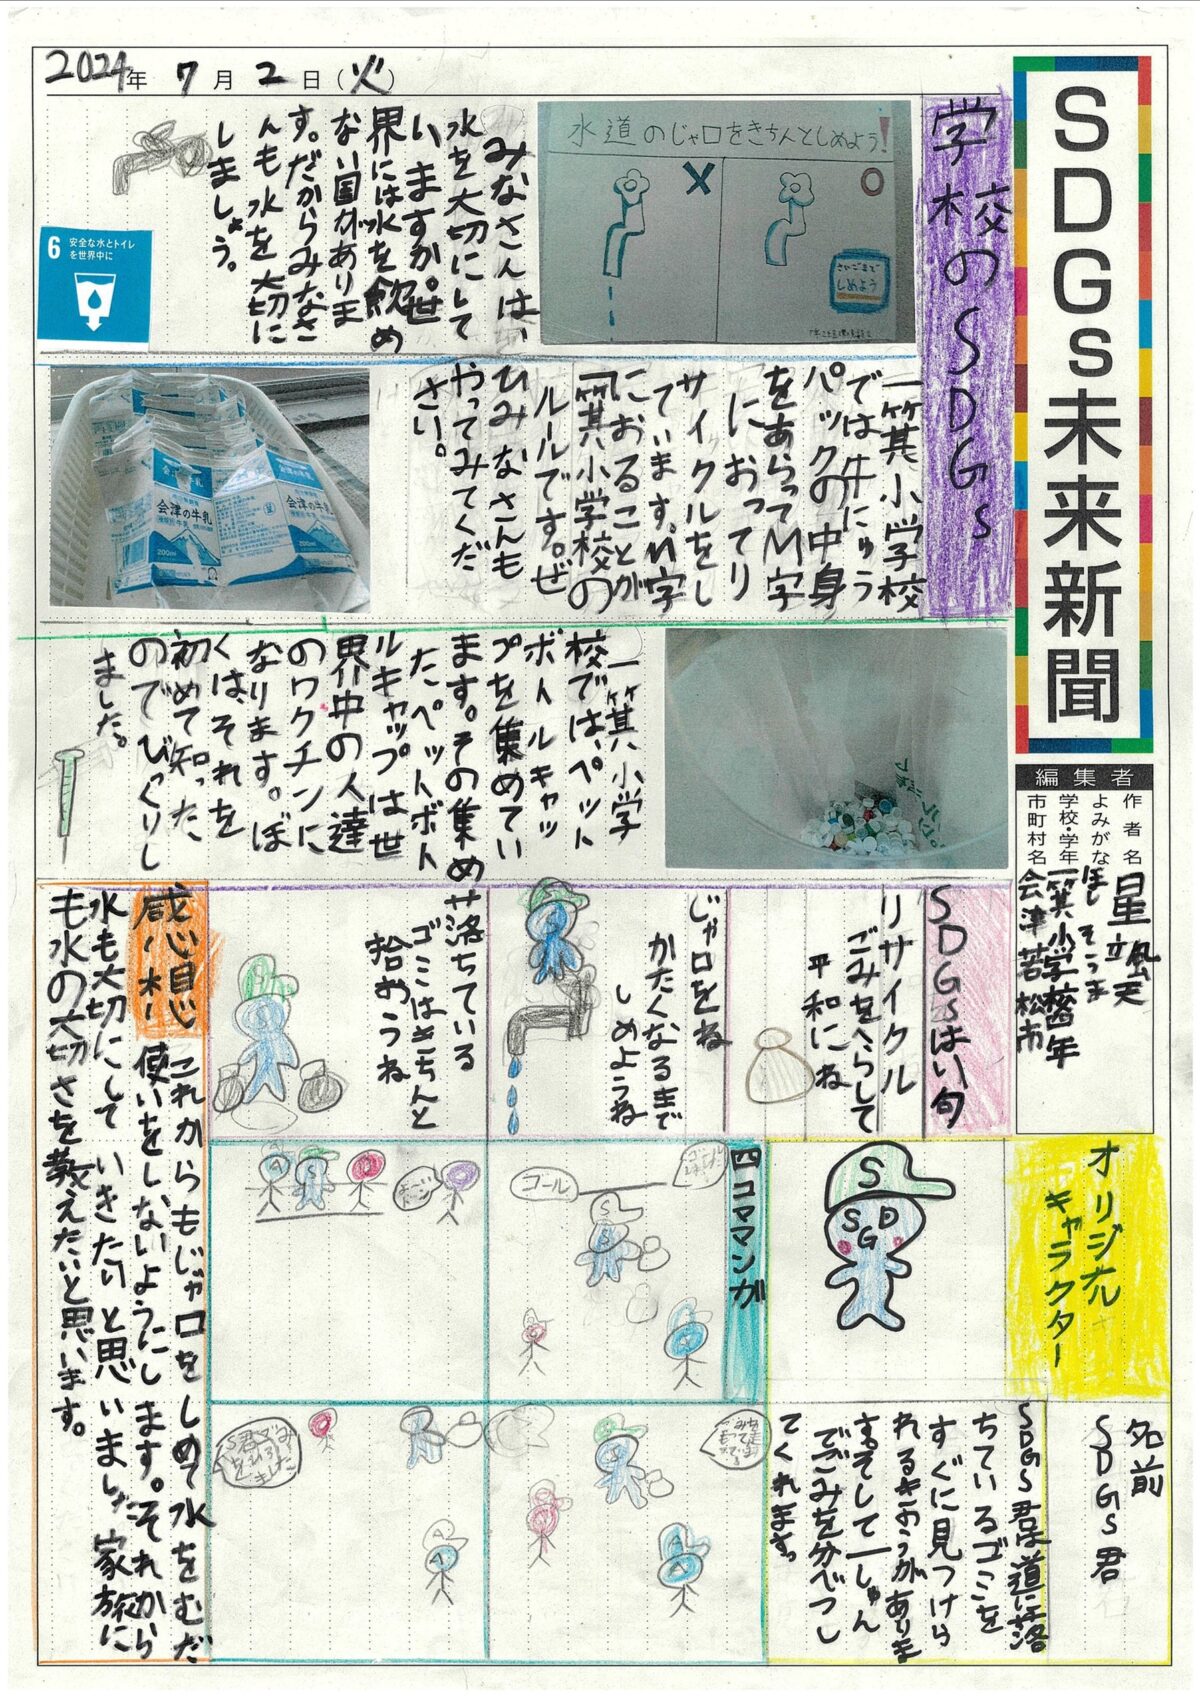 SDGs未来新聞
2024年 7月 2日(火)
編集者
作者名 星 颯天
よみがな ほし そうま
学校・学年 一箕小学校四年
市町村名 会津若松市
学校のSDGs
水道のじゃ口をきちんとしめよう!
さいごまで
しめよう
みなさんは、
水を大切にして
いますか。世
界には水を飲め
ない国がありま
す。だからみなさ
んも水を大切に
しましょう。
6 安全な水とトイレ
を世界中に
一箕小学校
では牛にゅう
パックの中身
をあらってM字
におってリ
サイクルをし
ています。M字
におることが
一箕小学校の
ルールです。ぜ
ひみなさんも
やってみてくだ
さい。
会津の牛乳
200ml
会津の牛乳
200ml
一箕小学
校では、ペット
ボトルキャッ
プを集めてい
ます。その集め
たペットボト
ルキャップは世
界中の人達
のワクチンに
なります。ぼ
くは、それを
初めて知った
のでびっくりし
ました。
SDGsはい句
リサイクル
ごみをへらして
平和にね
じゃ口をね
かたくなるまで
しめようね
落ちている
ゴミはきちんと
拾おうね
オリジナル
キャラクター
S
SDG
名前
SDGs君
SDGS君は道に落
ちているゴミを
すぐに見つけら
れるきのうがありま
す。そして一しゅん
でごみを分べつし
てくれます。
四コママンガ
ゴール
S
S
A
A
S
A
A
これからもじゃ口をしめて水をむだ
使いをしないようにします。それから
水も大切にしていきたいと思いまし、家族に
も水の大切さを教えたいと思います。